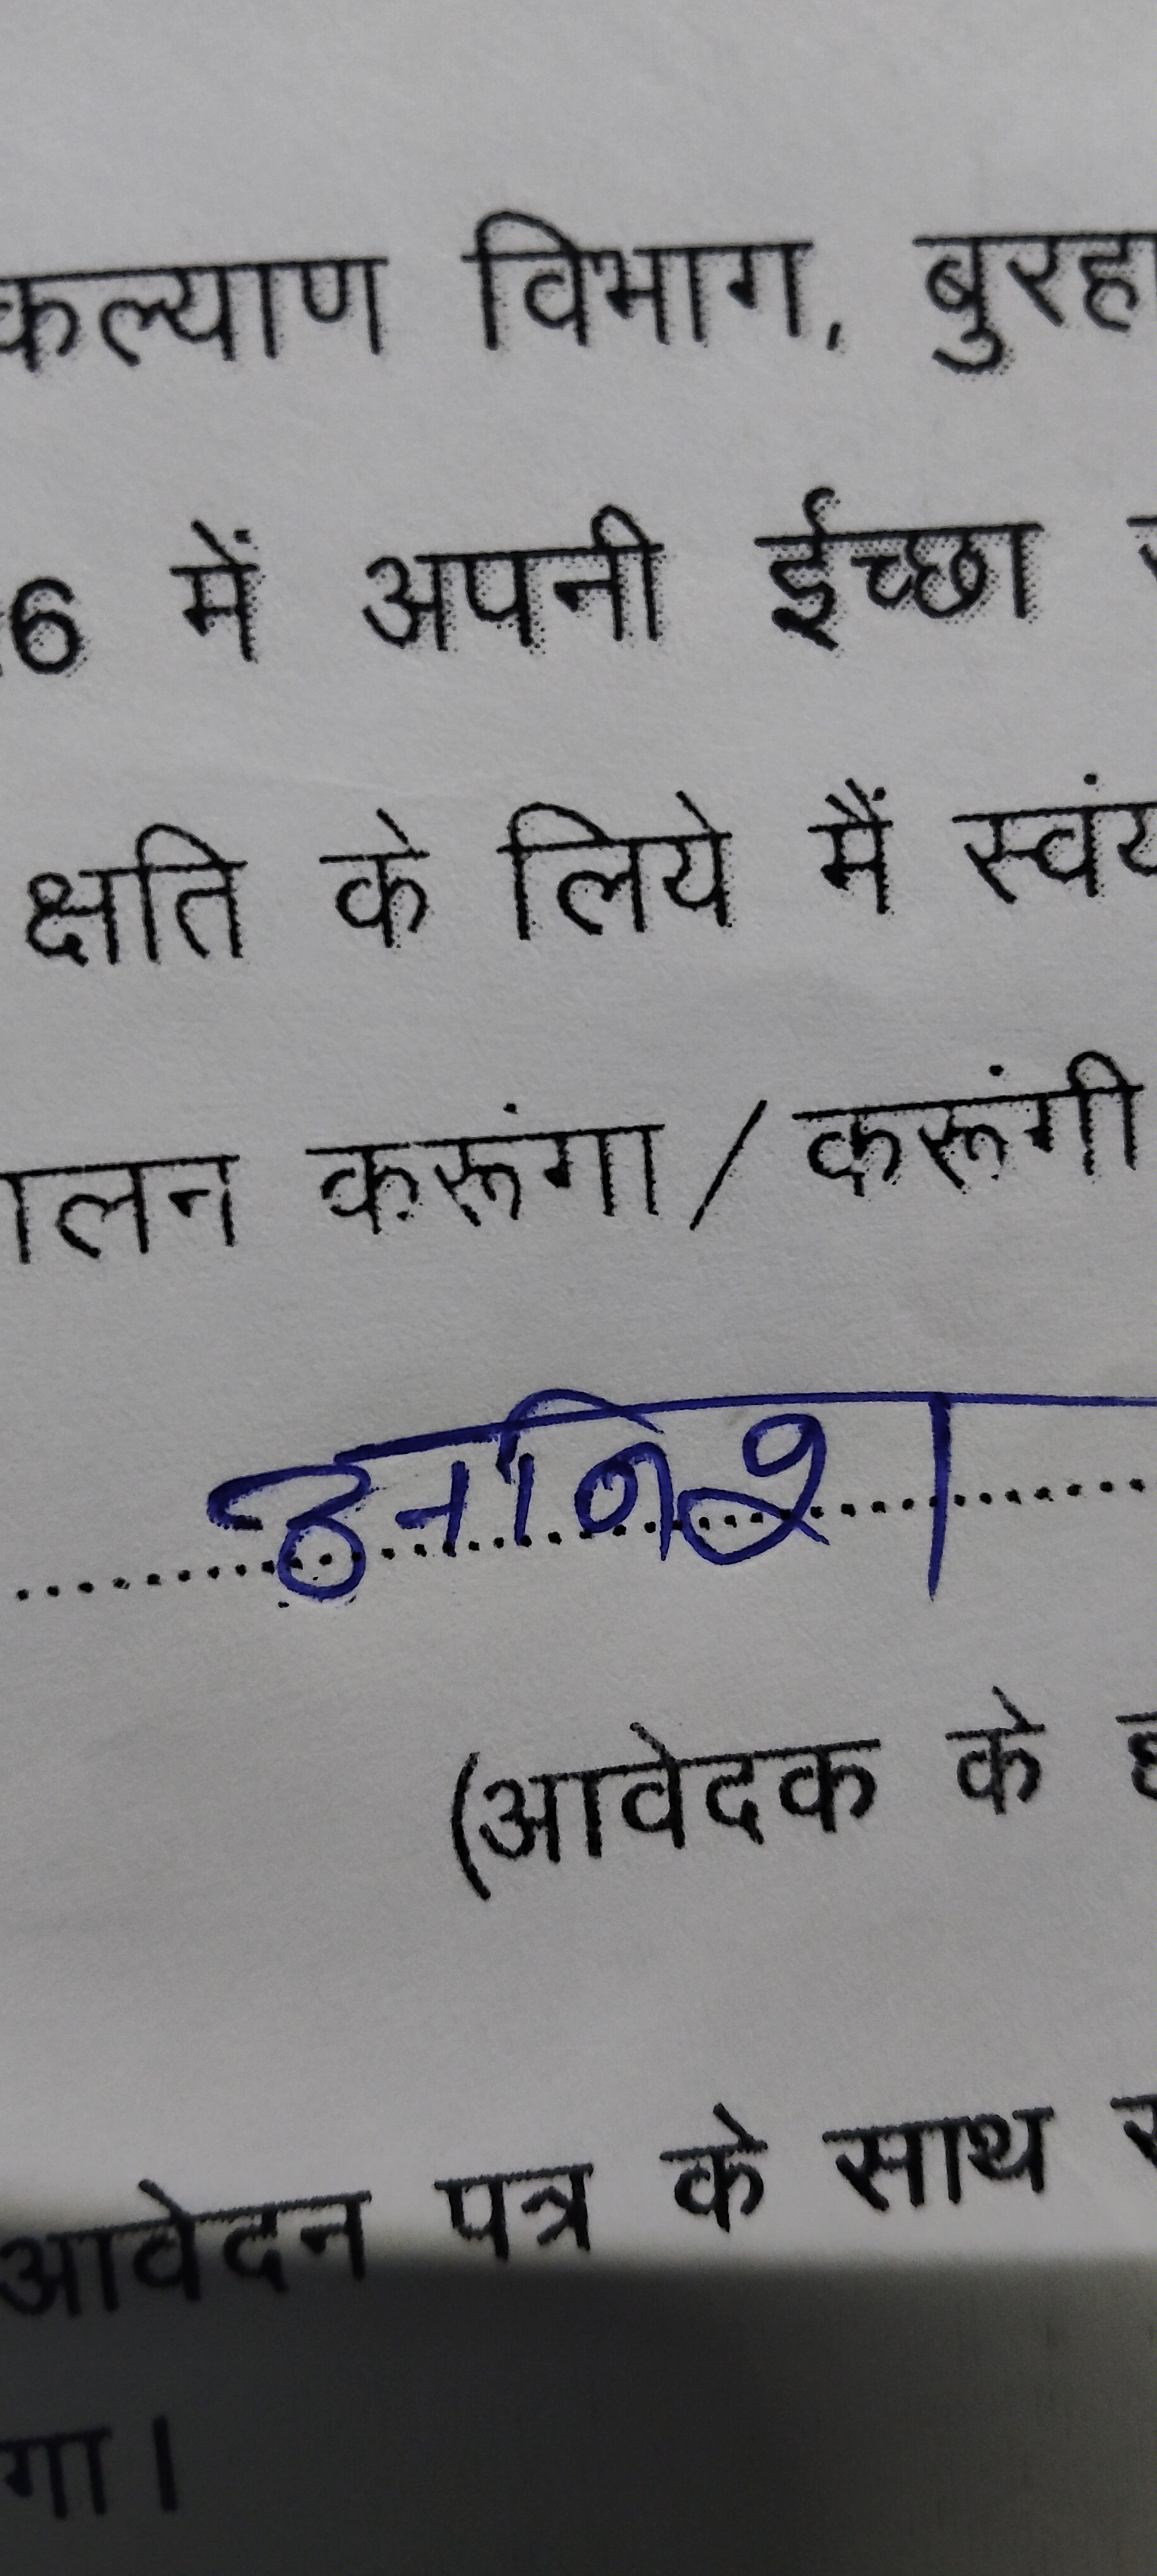 कल्याण विभाग, बुरहा
6 में अपनी ईच्छा
क्षति के लिये मैं स्वंय
ालन करूंगा/करूंगी
(आवेदक के ह
आवेदन पत्र के साथ
गा।